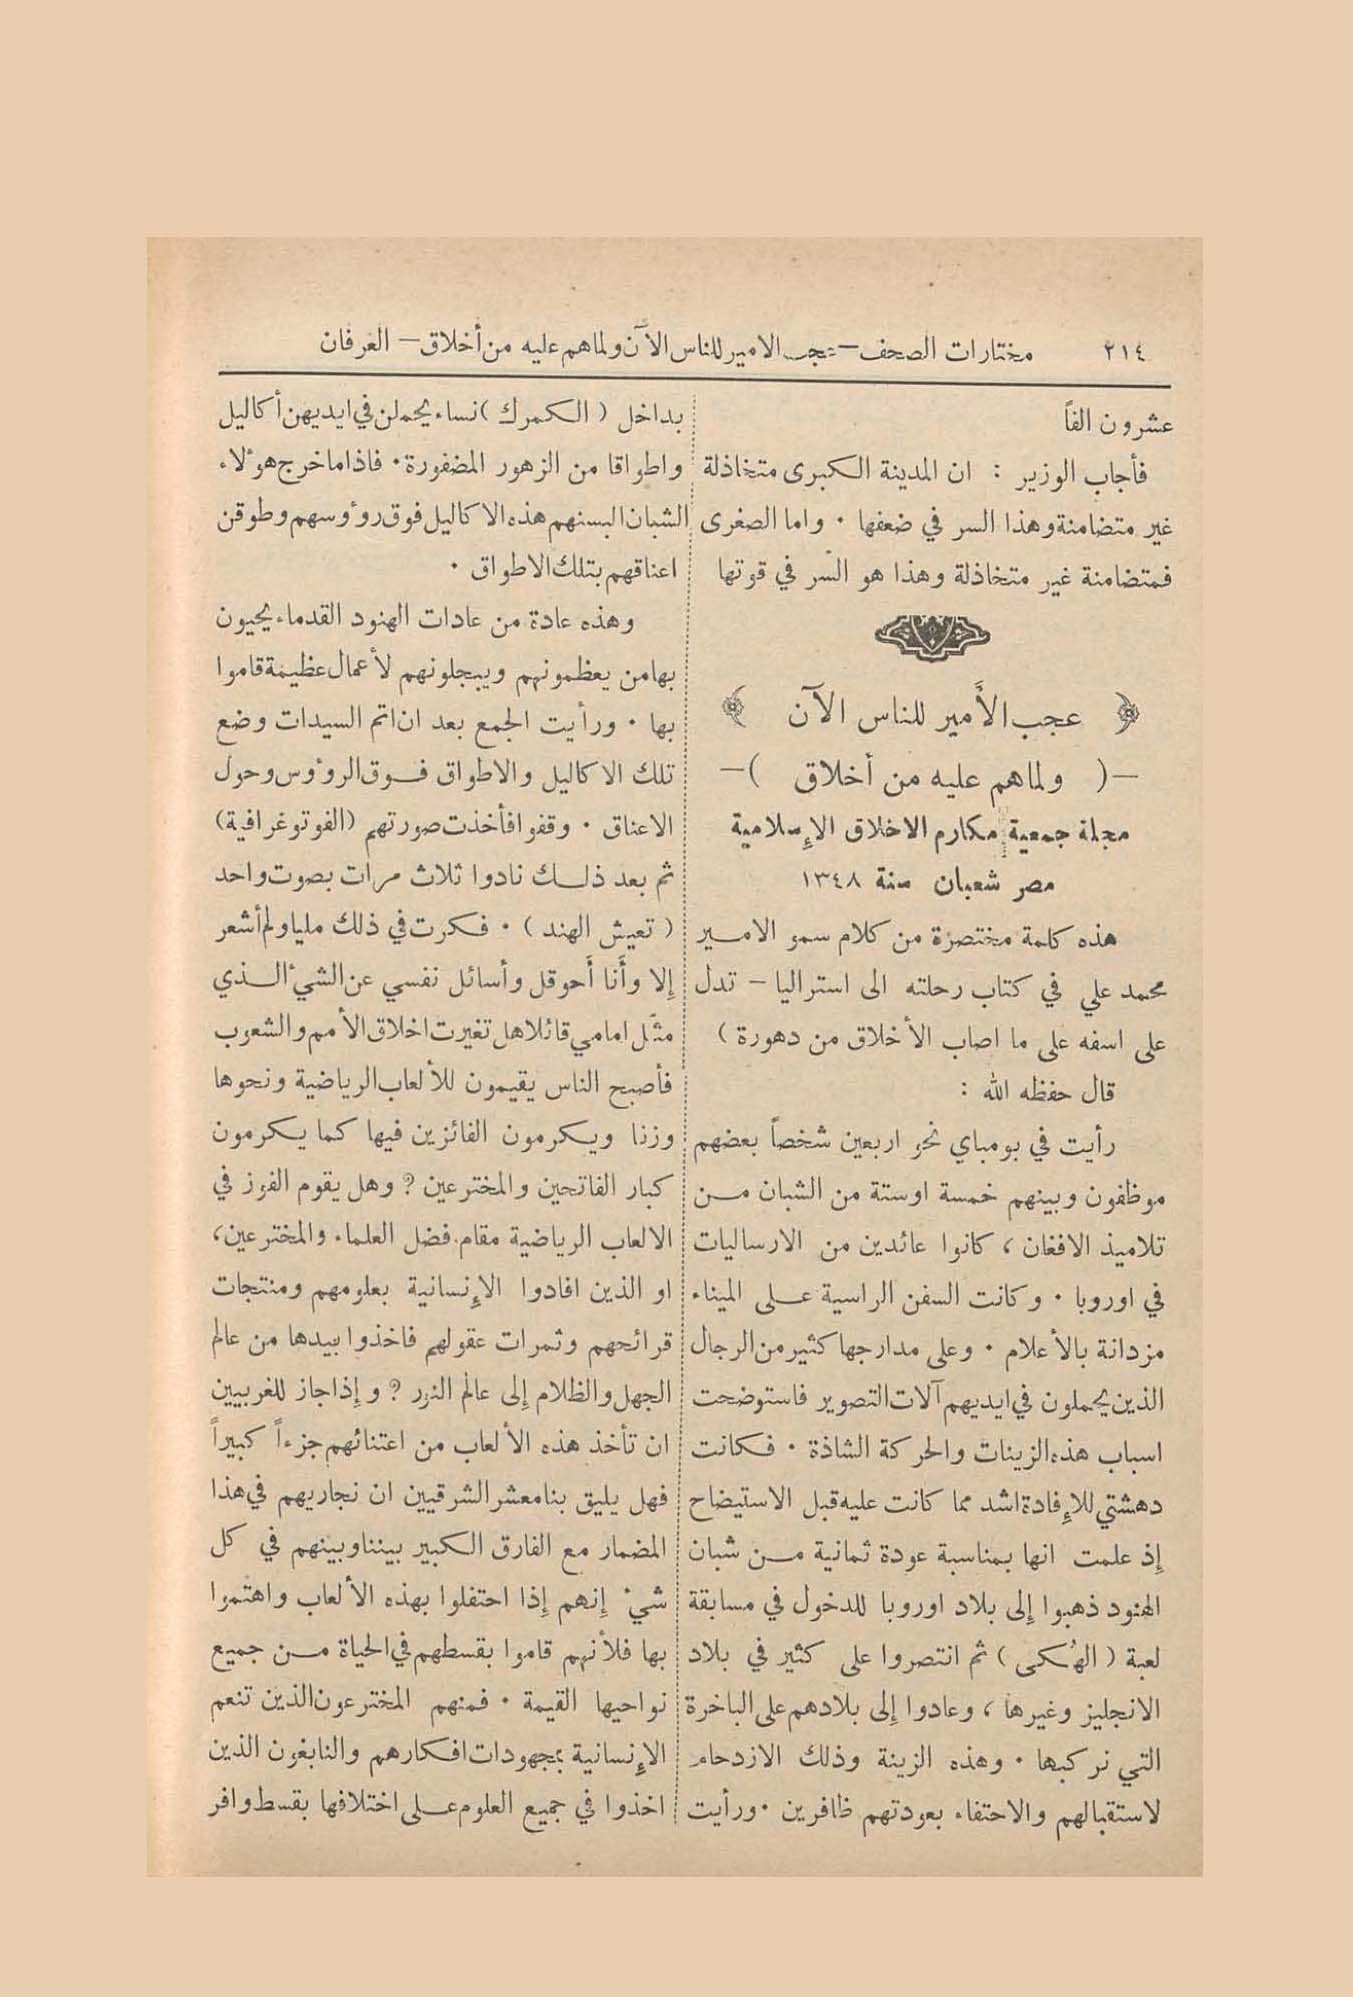 ٢١٤ مختارات الصحف – عجب الامير للناس الآن ولماهم عليه من أخلاق – العرفان
عشرون الفاً
فأجاب الوزير : ان المدينة الكبرى متخاذلة
غير متضامنة وهذا السر في ضعفها · واما الصغرى
فمتضامنة غير متخاذلة وهذا هو السّر في قوتها
﴿ عجب الأَمير للناس الآن ﴾
–( ولماهم عليه من أخلاق )–
مجلة جمعية مكارم الاخلاق الإسلامية
مصر شعبان سنة ١٣٤٨
هذه كلمة مختصرة من كلام سمو الامير
محمد علي في كتاب رحلته الى استراليا – تدل
على اسفه على ما اصاب الأخلاق من دهورة )
قال حفظه الله :
رأيت في بومباي نحو اربعين شخصاً بعضهم
موظفون وبينهم خمسة اوستة من الشبان من
تلاميذ الافغان ، كانوا عائدين من الارساليات
في اوروبا · وكانت السفن الراسية على الميناء
مزدانة بالأعلام · وعلى مدارجها كثير من الرجال
الذين يحملون في ايديهم آلات التصوير فاستوضحت
اسباب هذه الزينات والحركة الشاذة · فكانت
دهشتي للإفادة اشد مما كانت عليه قبل الاستيضاح
إذ علمت انها بمناسبة عودة ثمانية من شبان
الهنود ذهبوا إلى بلاد اوروبا للدخول في مسابقة
لعبة ( الهُكى ) ثم انتصروا على كثير في بلاد
الانجليز وغيرها ، وعادوا إلى بلادهم على الباخرة
التي نركبها · وهذه الزينة وذلك الازدحام
لاستقبالهم والاحتفاء بعودتهم ظافرين · ورأيت
بداخل ( الكمرك ) نساء يحملن في ايديهن أكاليل
واطواقا من الزهور المضفورة · فاذا ما خرج هؤلاء
الشبان البسنهم هذه الاكاليل فوق رؤوسهم وطوقن
اعناقهم بتلك الاطواق ·
وهذه عادة من عادات الهنود القدماء يحيون
بهامن يعظمونهم ويبجلونهم لأعمال عظيمة قاموا
بها · ورأيت الجمع بعد ان اتم السيدات وضع
تلك الاكاليل والاطواق فوق الرؤوس وحول
الاعناق · وقفوا فأخذت صورتهم (الفوتوغرافية)
ثم بعد ذلك نادوا ثلاث مرات بصوت واحد
( تعيش الهند ) · فكرت في ذلك مليا ولم أشعر
إلا وأَنا أَحوقل وأسائل نفسي عن الشيء الذي
مثّل امامي قائلا هل تغيرت اخلاق الأمم والشعوب
فأصبح الناس يقيمون للألعاب الرياضية ونحوها
وزنا ويكرمون الفائزين فيها كما يكرمون
كبار الفاتحين والمخترعين ؟ وهل يقوم الفوز في
الالعاب الرياضية مقام فضل العلماء والمخترعين ،
او الذين افادوا الإنسانية بعلومهم ومنتجات
قرائحهم وثمرات عقولهم فاخذوا بيدها من عالم
الجهل والظلام إلى عالم النور ؟ وإذا جاز للغربيين
ان تأخذ هذه الألعاب من اعتنائهم جزءاً كبيراً
فهل يليق بنا معشر الشرقيين ان نجاريهم في هذا
المضمار مع الفارق الكبير بيننا وبينهم في كل
شيء إنهم إذا احتفلوا بهذه الألعاب واهتموا
بها فلأنهم قاموا بقسطهم في الحياة من جميع
نواحيها القيمة · فمنهم المخترعون الذين تنعم
الإنسانية بمجهودات افكارهم والنابغون الذين
اخذوا في جميع العلوم على اختلافها بقسط وافر